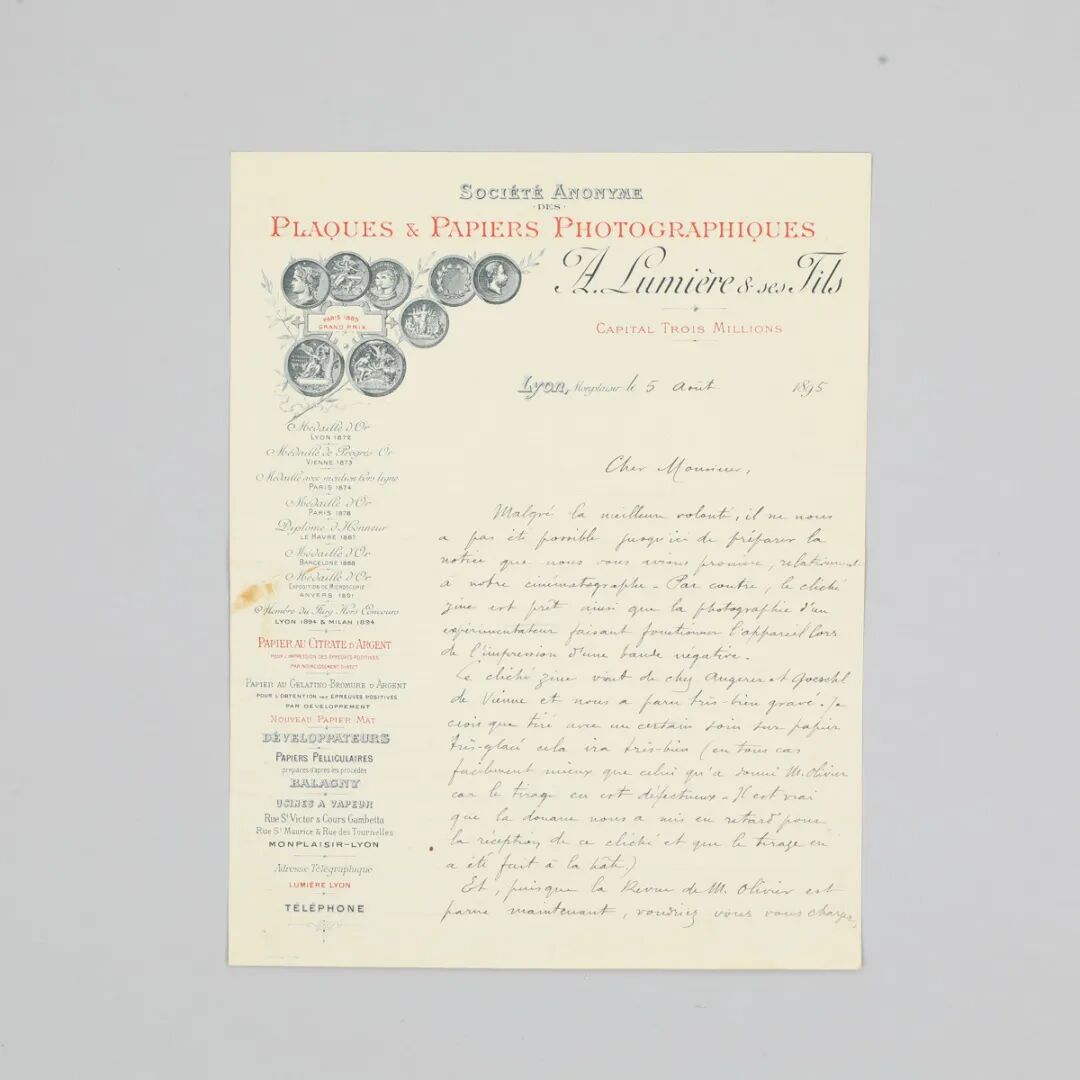 SOCIÉTÉ ANONYME
DES
PLAQUES & PAPIERS PHOTOGRAPHIQUES
A. Lumière & ses Fils
CAPITAL TROIS MILLIONS
PARIS 1889
GRAND PRIX
Lyon, Monplaisir le 5 Août 1895
Médaille d'Or
LYON 1872
Médaille de Progrès Or
VIENNE 1873
Médaille avec mention hors ligne
PARIS 1874
Médaille d'Or
PARIS 1878
Diplôme d'Honneur
LE HAVRE 1887
Médaille d'Or
BARCELONE 1888
Médaille d'Or
EXPOSITION DE MICROSCOPIE
ANVERS 1891
Membre du Jury Hors Concours
LYON 1894 & MILAN 1894
PAPIER AU CITRATE D'ARGENT
POUR L'IMPRESSION DES ÉPREUVES POSITIVES
PAR NOIRCISSEMENT DIRECT
PAPIER AU GELATINO-BROMURE D'ARGENT
POUR L'OBTENTION DES ÉPREUVES POSITIVES
PAR DÉVELOPPEMENT
NOUVEAU PAPIER MAT
DÉVELOPPATEURS
PAPIERS PELLICULAIRES
préparés d'après les procédés
BALAGNY
USINES A VAPEUR
Rue St Victor & Cours Gambetta
Rue St Maurice & Rue des Tournelles
MONPLAISIR-LYON
Adresse Télégraphique
LUMIÈRE LYON
TÉLÉPHONE
Cher Monsieur,
Malgré la meilleure volonté, il ne nous
a pas été possible jusqu'ici de préparer la
notice que nous vous avions promise, relativement
à notre cinématographe - Par contre, le cliché
zinc est prêt ainsi que la photographie d'un
expérimentateur faisant fonctionner l'appareil lors
de l'impression d'une bande négative.
Ce cliché zinc vient de chez Angerer et Goeschl
de Vienne et nous a paru très-bien gravé. Je
crois que tiré avec un certain soin sur papier
très-glacé cela ira très-bien (en tous cas
facilement mieux que celui qu'a donné M. Olivier
car le tirage en est défectueux - Il est vrai
que la douane nous a mis en retard pour
la réception de ce cliché et que le tirage en
a été fait à la hâte.)
Et, puisque la Revue de M. Olivier est
parue maintenant, voudriez vous vous charger,